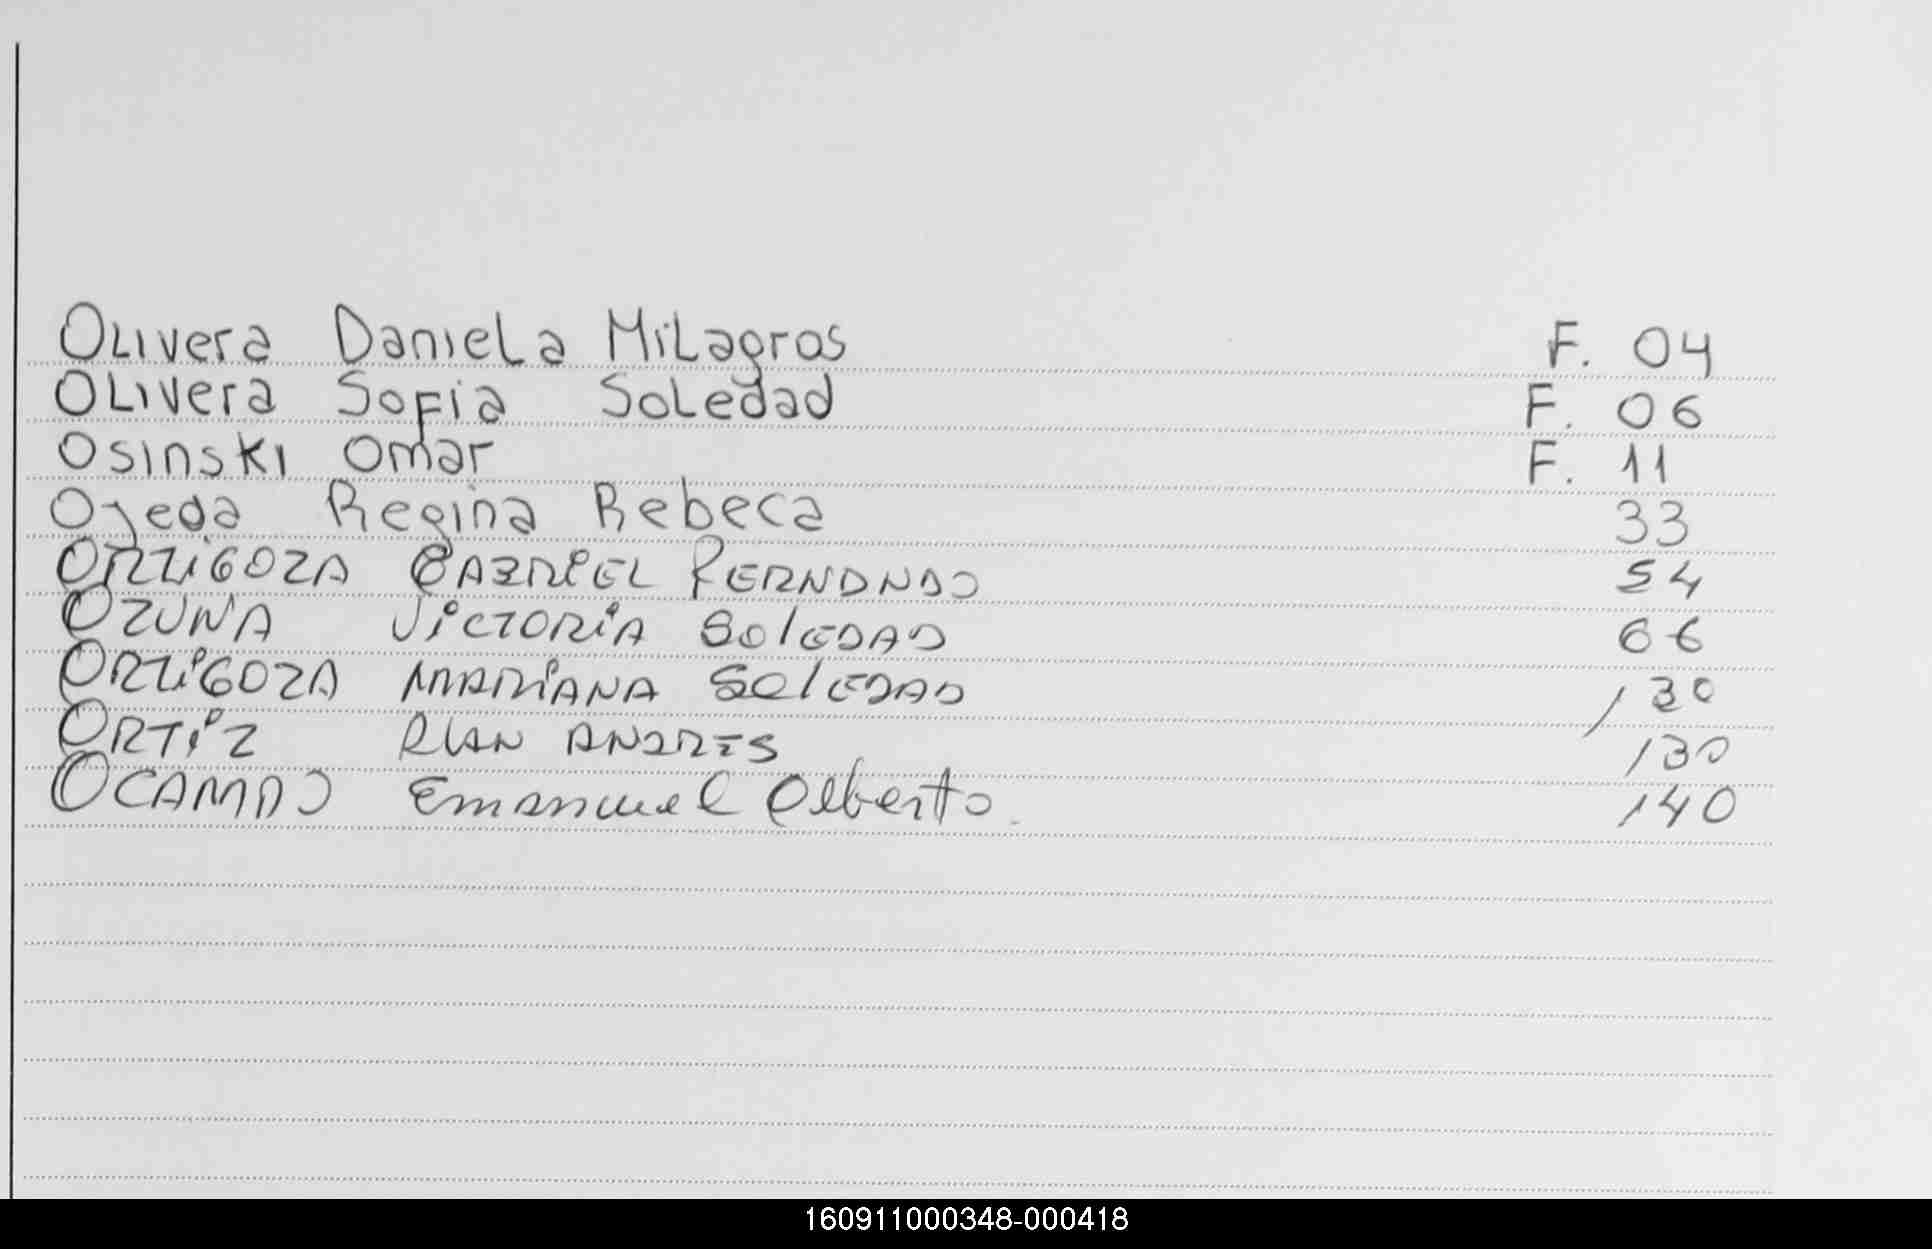 Olivera Daniela Milagros F. 04
Olivera Sofia Soledad F. 06
Osinski Omar F. 11
Ojeda Regina Rebeca 33
ORTIGOZA GABRIEL FERNANDO 54
OZUNA VICTORIA SOLEDAD 66
ORTIGOZA MARIANA SOLEDAD 120
ORTIZ ANDRES 130
OCAMPO Emanuel Alberto. 140
160911000348-000418